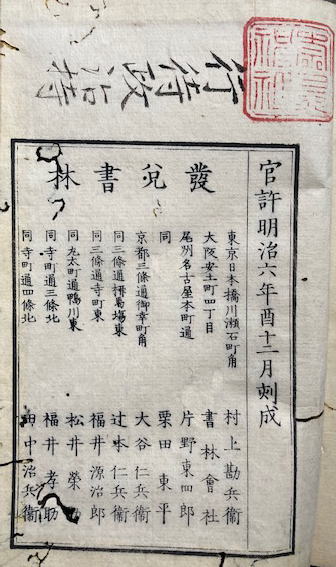 官許明治六年酉十二月刻成
發兌書林
東京日本橋川瀬石町角 村上勘兵衞
大阪安土町四丁目 書林會社
尾州名古屋本町通 片野東四郎
同 栗田東平
京都三條通御幸町角 大谷仁兵衞
同三條通栁馬塲東 辻本仁兵衞
同三條通寺町東 福井源治郎
同丸太町通鴨川東 松井榮
同寺町通三條北 福井孝助
同寺町通四條北 田中治兵衞